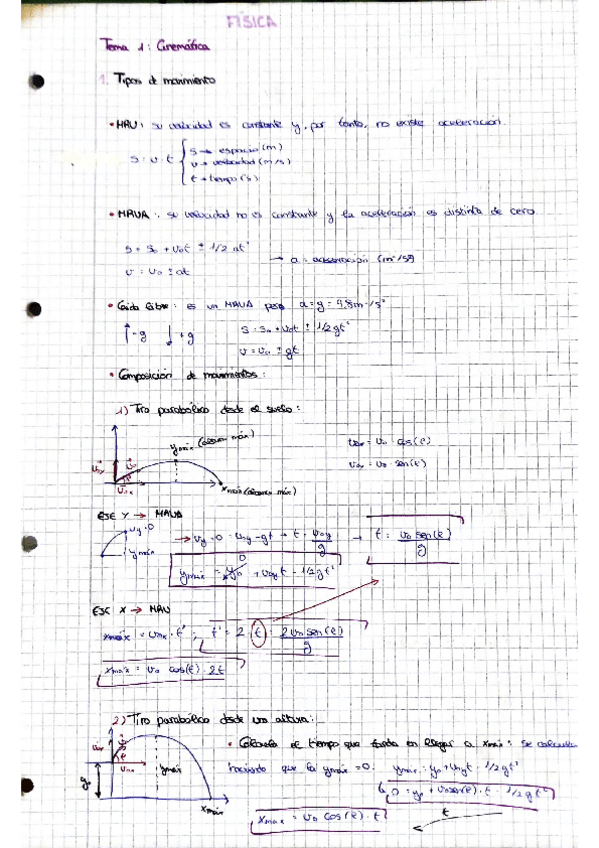 FÍSICA
Tema 1: Cinemática
1. Tipos de movimiento
• MRU: su velocidad es constante y, por tanto, no existe aceleración.
s = v · t { s → espacio (m)
v → velocidad (m/s)
t → tiempo (s)
• MRUA: su velocidad no es constante y la aceleración es distinta de cero
s = s₀ + v₀t ± 1/2 at²
→ a = aceleración (m/s²)
v = v₀ ± at
• Caída libre: es un MRUA pero a = g = 9,8 m/s²
↑ -g ↓ +g s = s₀ + v₀t ± 1/2 gt²
v = v₀ ± gt
• Composición de movimientos:
1) Tiro parabólico desde el suelo:
ymáx (altura máx)
v₀x = v₀ · cos(α)
v₀y = v₀ · sen(α)
xmáx (alcance máx)
v₀x
EJE Y → MRUA
vy = 0
→ vy = 0 = v₀y - gt → t = v₀y/g → t = v₀ sen(α)/g
ymáx
ymáx = y₀ + v₀yt - 1/2 gt²
EJE X → MRU
xmáx = v₀x · t' ; t' = 2 · t = 2v₀ sen(α)/g
xmáx = v₀ cos(α) · 2t
2) Tiro parabólico desde una altura:
• Cálculo el tiempo que tarda en llegar a xmáx: se calcula
haciendo que la ymáx = 0: ymáx = y₀ + v₀yt - 1/2 gt²
ymáx
y₀
v₀x
0 = y₀ + v₀ sen(α) · t - 1/2 gt²
xmáx
xmax = v₀ cos(α) · t
t